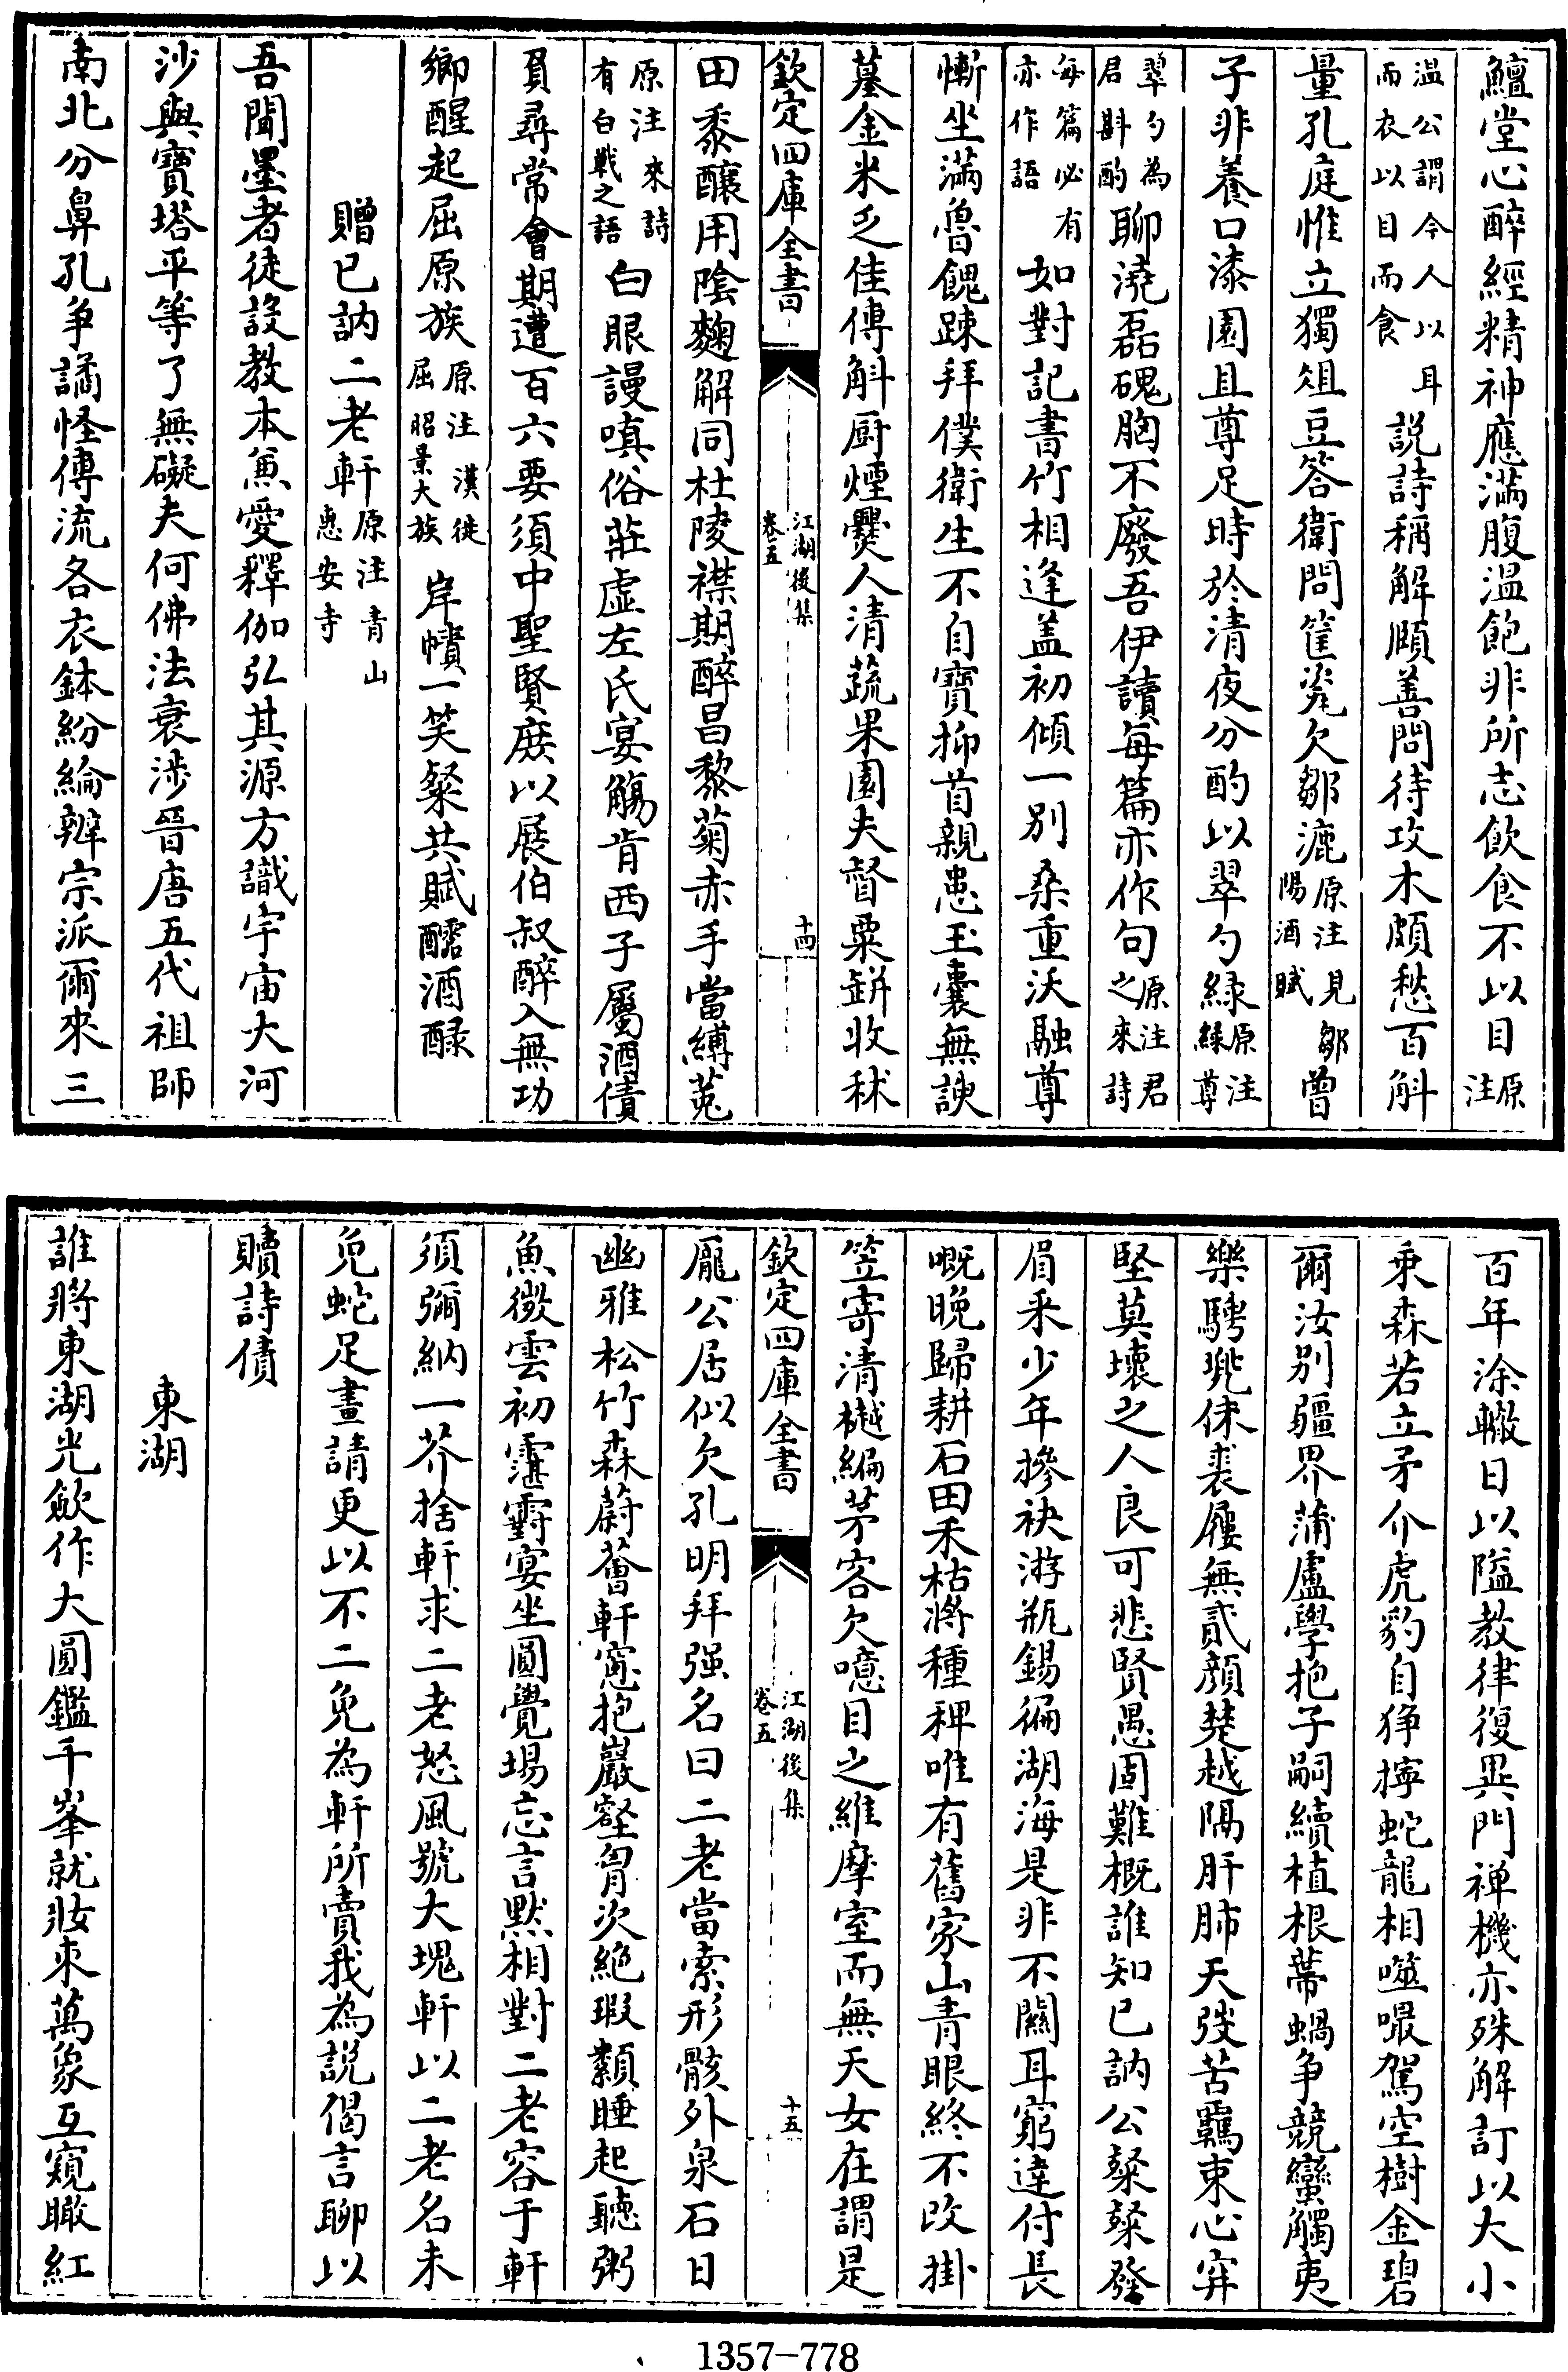 鱣堂心醉經精神應滿腹溫飽非所志飲食不以目原注
溫公謂今人以耳而衣以目而食說詩稱解頤善問待攻木頗愁百斛
量孔庭惟立獨俎豆答衛問筐筴欠鄒漉原注見鄒陽酒賦曾
子非養口漆園且尊足時於清夜分酌以翠勺緑原注緑尊
翠勺為君斟酌聊澆磊磈胸不廢吾伊讀每篇亦作句原注君來詩之
每篇必有亦作語如對記書竹相逢盖初傾一別桑重沃融尊
慚坐滿魯餽踈拜僕衛生不自寶抑首親患玉囊無諛
墓金米乏佳傳斛厨煙爨人清蔬果園夫督粟缾收秫
欽定四庫全書
江湖後集卷五
十四
田黍釀用陰麴解同杜陵襟期醉昌黎菊赤手當縛菟
原注來詩有白戰之語白眼謾嗔俗莊虛左氏宴觴肯西子屬酒債
負尋常會期遭百六要須中聖賢庶以展伯叔醉入無功
鄉醒起屈原族原注漢徙屈昭景大族岸幘一笑粲共賦醹酒醁
贈已訥二老軒原注青山惠安寺
吾聞墨者徒設教本兼愛釋伽弘其源方識宇宙大河
沙與寶塔平等了無礙夫何佛法衰涉晉唐五代祖師
南北分鼻孔争譎怪傳流各衣鉢紛綸辨宗派爾來三
百年涂轍日以隘教律復異門禅機亦殊解訂以大小
乗森若立矛介虎豹自狰擰蛇龍相噬嘬駕空樹金碧
爾汝别疆界蒲盧學抱子嗣續植根蔕蝸争競蠻觸夷
樂騁兠侏裘屨無貳顔楚越隔肝肺天弢苦羈束心穽
堅莫壞之人良可悲賢愚固難概誰知已訥公粲粲發
眉釆少年摻袂游瓶錫徧湖海是非不關耳窮達付長
嘅晚歸耕石田禾枯將種稗唯有舊家山青眼終不改掛
笠寄清樾編茅客欠噫目之維摩室而無天女在謂是
欽定四庫全書
江湖後集卷五
十五
龎公居似欠孔明拜强名曰二老當索形骸外泉石日
幽雅松竹森蔚薈軒窻抱巖壑胷次絶瑕纇睡起聽粥
魚微雲初霮䨴宴坐圓覺場忘言黙相對二老容于軒
須彌納一芥捨軒求二老怒風號大塊軒以二老名未
免蛇足畫請更以不二免為軒所賣我為説偈言聊以
贖詩債
東湖
誰將東湖光歛作大圓鑑千峯就妝來萬象互窺瞰紅
1357-778